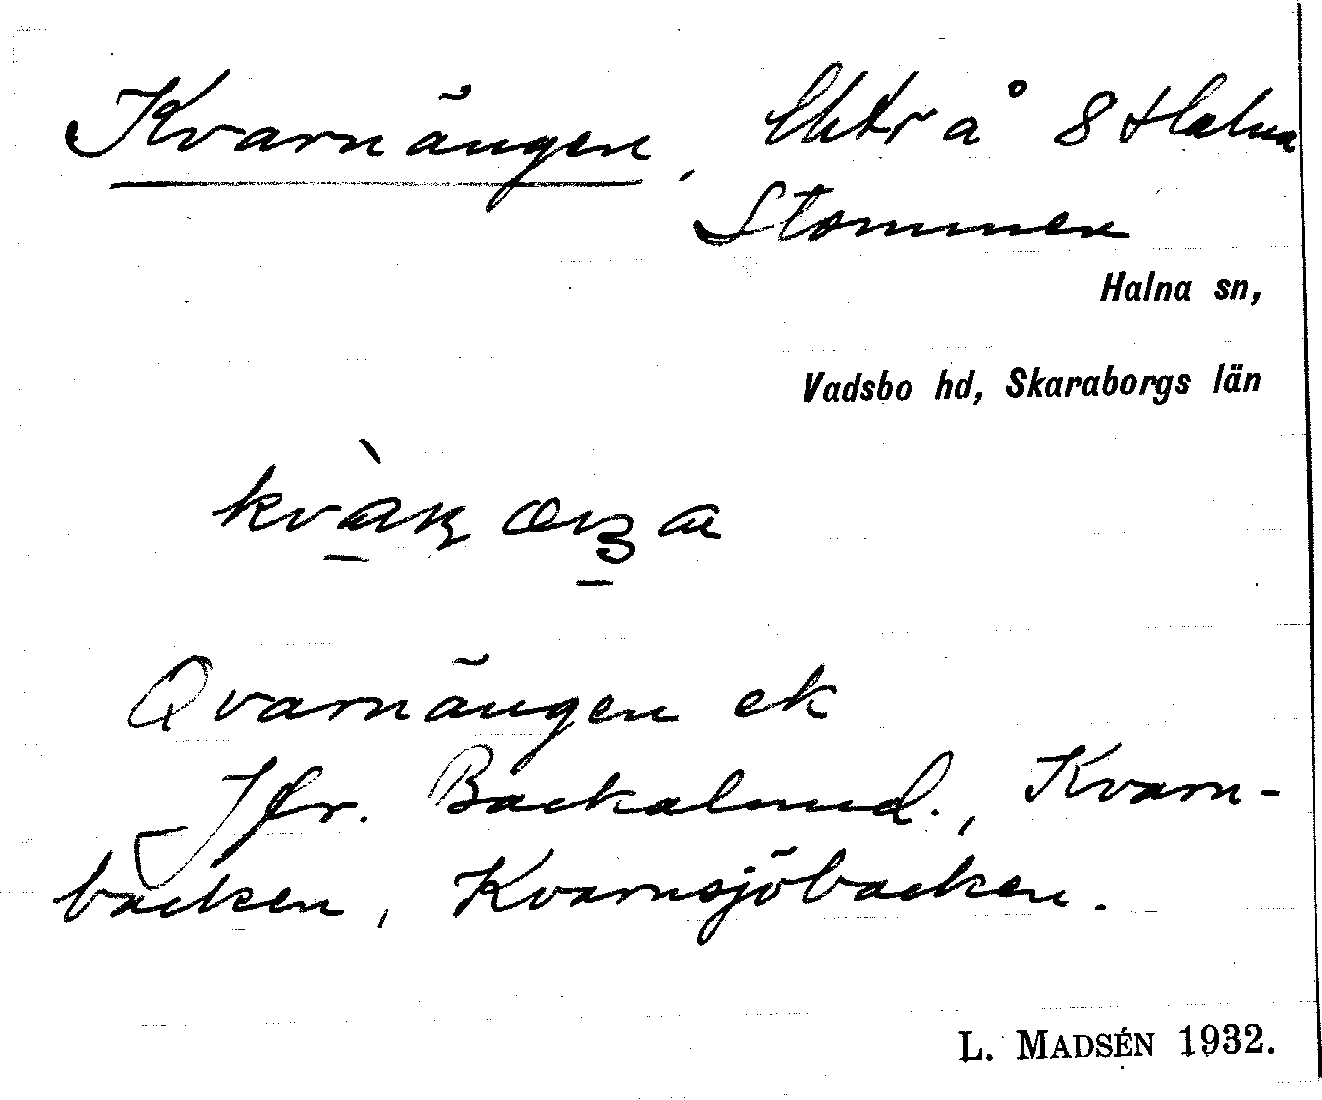 Kvarnängen, Sktr å 8 Halna
Stommen
Halna sn,
Vadsbo hd, Skaraborgs län
Qvarnängen ek
Jfr. Backalund., Kvarn-
backen, Kvarnsjöbacken.
L. MADSÉN 1932.